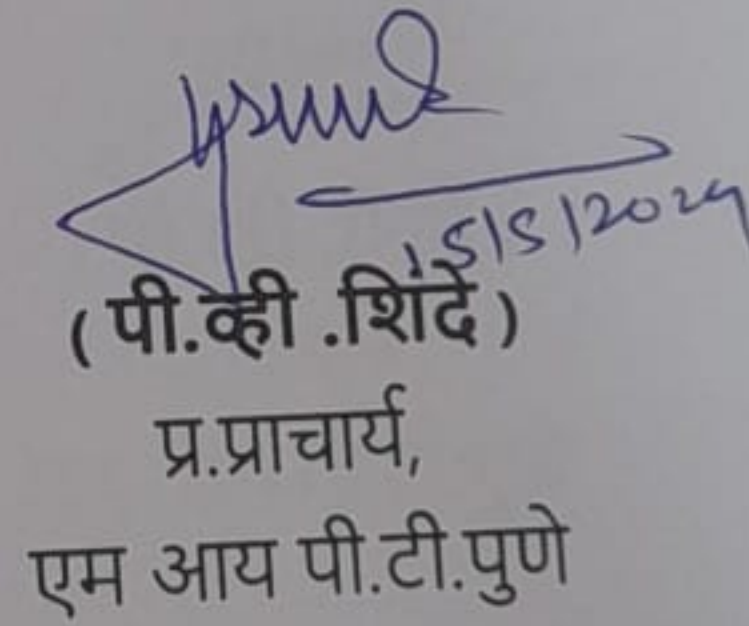 15/5/2024
( पी.व्ही .शिंदे )
प्र.प्राचार्य,
एम आय पी.टी.पुणे